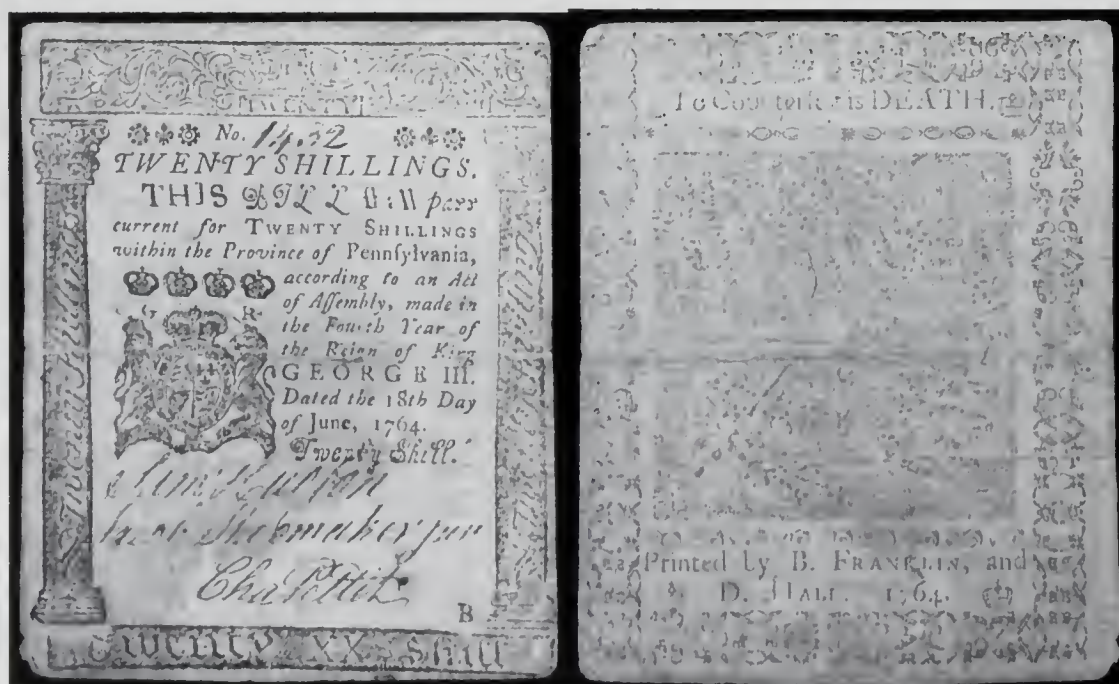 TWENTY
No. 1432
TWENTY SHILLINGS.
THIS BILL shall pass
current for TWENTY SHILLINGS
within the Province of Pennſylvania,
according to an Act
of Aſſembly, made in
the Fourth Year of
the Reign of King
GEORGE III.
Dated the 18th Day
of June, 1764.
Twenty Shill.
G R
Twenty Shillings
Shoemaker jun
Cha Pettit
B
Twenty XX Shill
To Counterfeit is DEATH.
Printed by B. FRANKLIN, and
D. HALL. 1764.